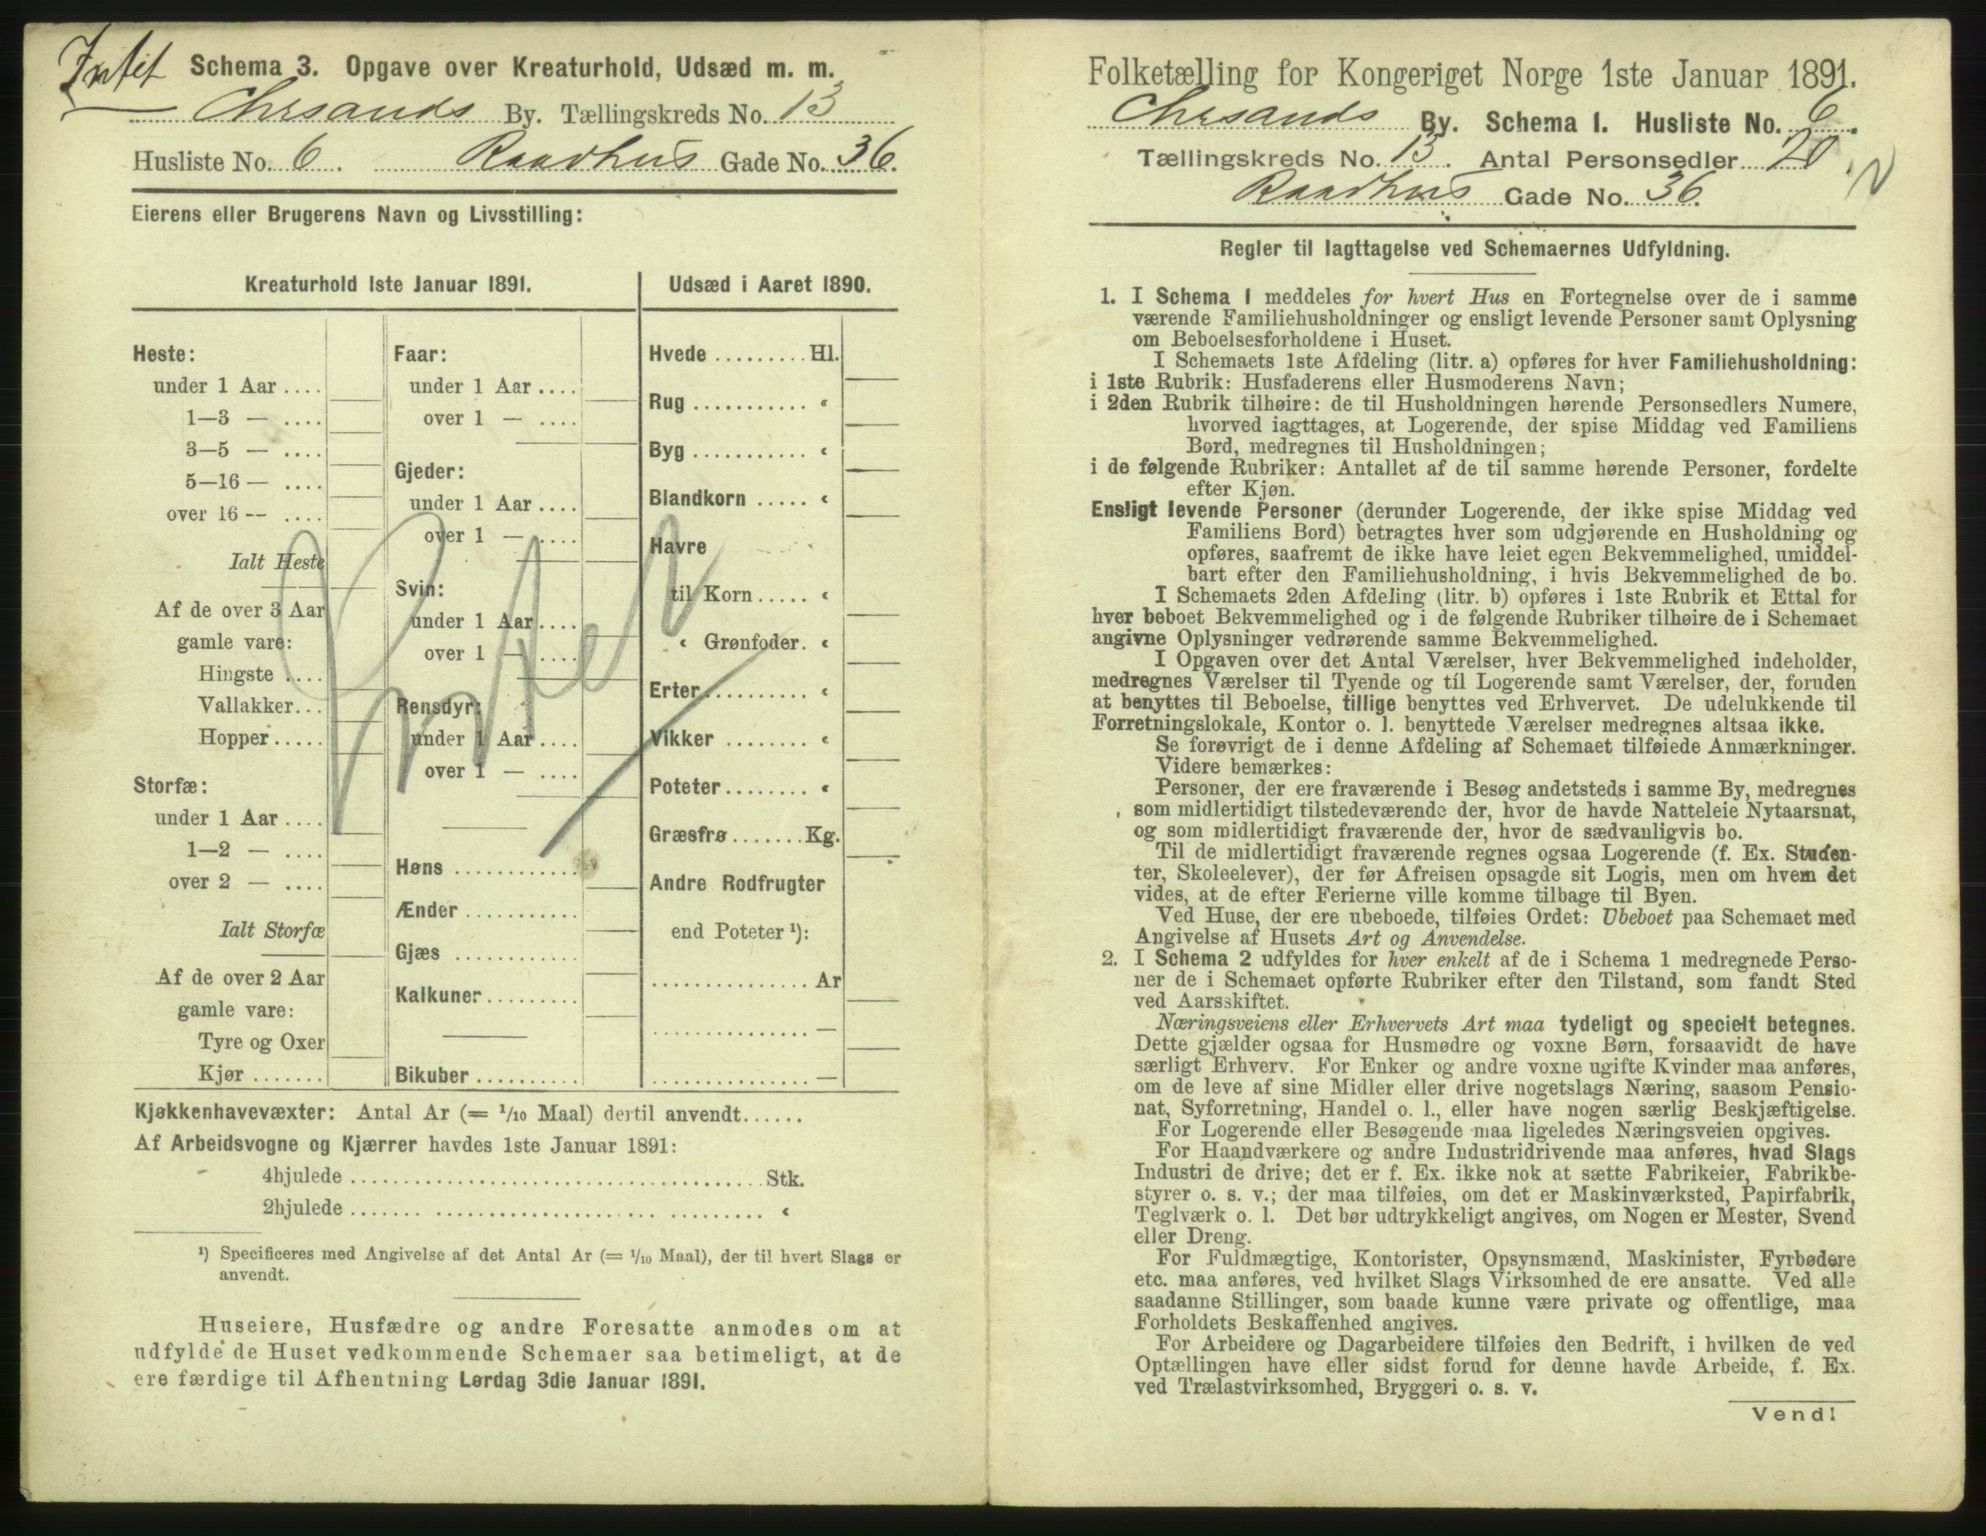 Intet
Schema 3. Opgave over Kreaturhold, Udsæd m. m.
Chrsands By. Tællingskreds No. 13
Husliste No. 6. Raadhus Gade No. 36.
Eierens eller Brugerens Navn og Livsstilling:
Kreaturhold 1ste Januar 1891.
Heste:
under 1 Aar ....
1—3 — ....
3—5 — ....
5—16 — ....
over 16 -- ....
Ialt Heste
Af de over 3 Aar
gamle vare:
Hingste ....
Vallakker...
Hopper.....
Storfæ:
under 1 Aar ....
1—2 — ....
over 2 — ....
Ialt Storfæ
Af de over 2 Aar
gamle vare:
Tyre og Oxer
Kjør .......
Faar:
under 1 Aar ....
over 1 — ....
Gjeder:
under 1 Aar ....
over 1 — ....
Svin:
under 1 Aar ....
over 1 — ....
Rensdyr:
under 1 Aar ....
over 1 — ....
Høns ............
Ænder ...........
Gjæs ............
Kalkuner.........
Bikuber ..........
Intet
Udsæd i Aaret 1890.
Hvede .........Hl.
Rug ........... «
Byg ........... «
Blandkorn ..... «
Havre
til Korn ..... «
« Grønfoder. «
Erter.......... «
Vikker ........ «
Poteter........ «
Græsfrø.......Kg.
Andre Rodfrugter
end Poteter ¹):
...............Ar
...............—
...............—
Kjøkkenhavevæxter: Antal Ar (= 1/10 Maal) dertil anvendt......
Af Arbeidsvogne og Kjærrer havdes 1ste Januar 1891:
4hjulede ........................................Stk.
2hjulede ........................................ «
¹) Specificeres med Angivelse af det Antal Ar (= 1/10 Maal), der til hvert Slags er
anvendt.
Huseiere, Husfædre og andre Foresatte anmodes om at
udfylde de Huset vedkommende Schemaer saa betimeligt, at de
ere færdige til Afhentning Lørdag 3die Januar 1891.
Folketælling for Kongeriget Norge 1ste Januar 1891.
Chrsands By. Schema I. Husliste No. 6.
Tællingskreds No. 13. Antal Personsedler 20
Raadhus Gade No. 36.
Regler til Iagttagelse ved Schemaernes Udfyldning.
1. I Schema 1 meddeles for hvert Hus en Fortegnelse over de i samme
værende Familiehusholdninger og ensligt levende Personer samt Oplysning
om Beboelsesforholdene i Huset.
I Schemaets 1ste Afdeling (litr. a) opføres for hver Familiehusholdning:
i 1ste Rubrik: Husfaderens eller Husmoderens Navn;
i 2den Rubrik tilhøire: de til Husholdningen hørende Personsedlers Numere,
hvorved iagttages, at Logerende, der spise Middag ved Familiens
Bord, medregnes til Husholdningen;
i de følgende Rubriker: Antallet af de til samme hørende Personer, fordelte
efter Kjøn.
Ensligt levende Personer (derunder Logerende, der ikke spise Middag ved
Familiens Bord) betragtes hver som udgjørende en Husholdning og
opføres, saafremt de ikke have leiet egen Bekvemmelighed, umiddel-
bart efter den Familiehusholdning, i hvis Bekvemmelighed de bo.
I Schemaets 2den Afdeling (litr. b) opføres i 1ste Rubrik et Ettal for
hver beboet Bekvemmelighed og i de følgende Rubriker tilhøire de i Schemaet
angivne Oplysninger vedrørende samme Bekvemmelighed.
I Opgaven over det Antal Værelser, hver Bekvemmelighed indeholder,
medregnes Værelser til Tyende og til Logerende samt Værelser, der, foruden
at benyttes til Beboelse, tillige benyttes ved Erhvervet. De udelukkende til
Forretningslokale, Kontor o. l. benyttede Værelser medregnes altsaa ikke.
Se forøvrigt de i denne Afdeling af Schemaet tilføiede Anmærkninger.
Videre bemærkes:
Personer, der ere fraværende i Besøg andetsteds i samme By, medregnes
som midlertidigt tilstedeværende der, hvor de havde Natteleie Nytaarsnat,
og som midlertidigt fraværende der, hvor de sædvanligvis bo.
Til de midlertidigt fraværende regnes ogsaa Logerende (f. Ex. Studen-
ter, Skoleelever), der før Afreisen opsagde sit Logis, men om hvem det
vides, at de efter Ferierne ville komme tilbage til Byen.
Ved Huse, der ere ubeboede, tilføies Ordet: Ubeboet paa Schemaet med
Angivelse af Husets Art og Anvendelse.
2. I Schema 2 udfyldes for hver enkelt af de i Schema 1 medregnede Perso-
ner de i Schemaet opførte Rubriker efter den Tilstand, som fandt Sted
ved Aarsskiftet.
Næringsveiens eller Erhvervets Art maa tydeligt og specielt betegnes.
Dette gjælder ogsaa for Husmødre og voxne Børn, forsaavidt de have
særligt Erhverv. For Enker og andre voxne ugifte Kvinder maa anføres,
om de leve af sine Midler eller drive nogetslags Næring, saasom Pensio-
nat, Syforretning, Handel o. l., eller have nogen særlig Beskjæftigelse.
For Logerende eller Besøgende maa ligeledes Næringsveien opgives.
For Haandværkere og andre Industridrivende maa anføres, hvad Slags
Industri de drive; det er f. Ex. ikke nok at sætte Fabrikeier, Fabrikbe-
styrer o. s. v.; der maa tilføies, om det er Maskinværksted, Papirfabrik,
Teglværk o. l. Det bør udtrykkeligt angives, om Nogen er Mester, Svend
eller Dreng.
For Fuldmægtige, Kontorister, Opsynsmænd, Maskinister, Fyrbødere
etc. maa anføres, ved hvilket Slags Virksomhed de ere ansatte. Ved alle
saadanne Stillinger, som baade kunne være private og offentlige, maa
Forholdets Beskaffenhed angives.
For Arbeidere og Dagarbeidere tilføies den Bedrift, i hvilken de ved
Optællingen have eller sidst forud for denne havde Arbeide, f. Ex.
ved Trælastvirksomhed, Bryggeri o. s. v.
Vend!